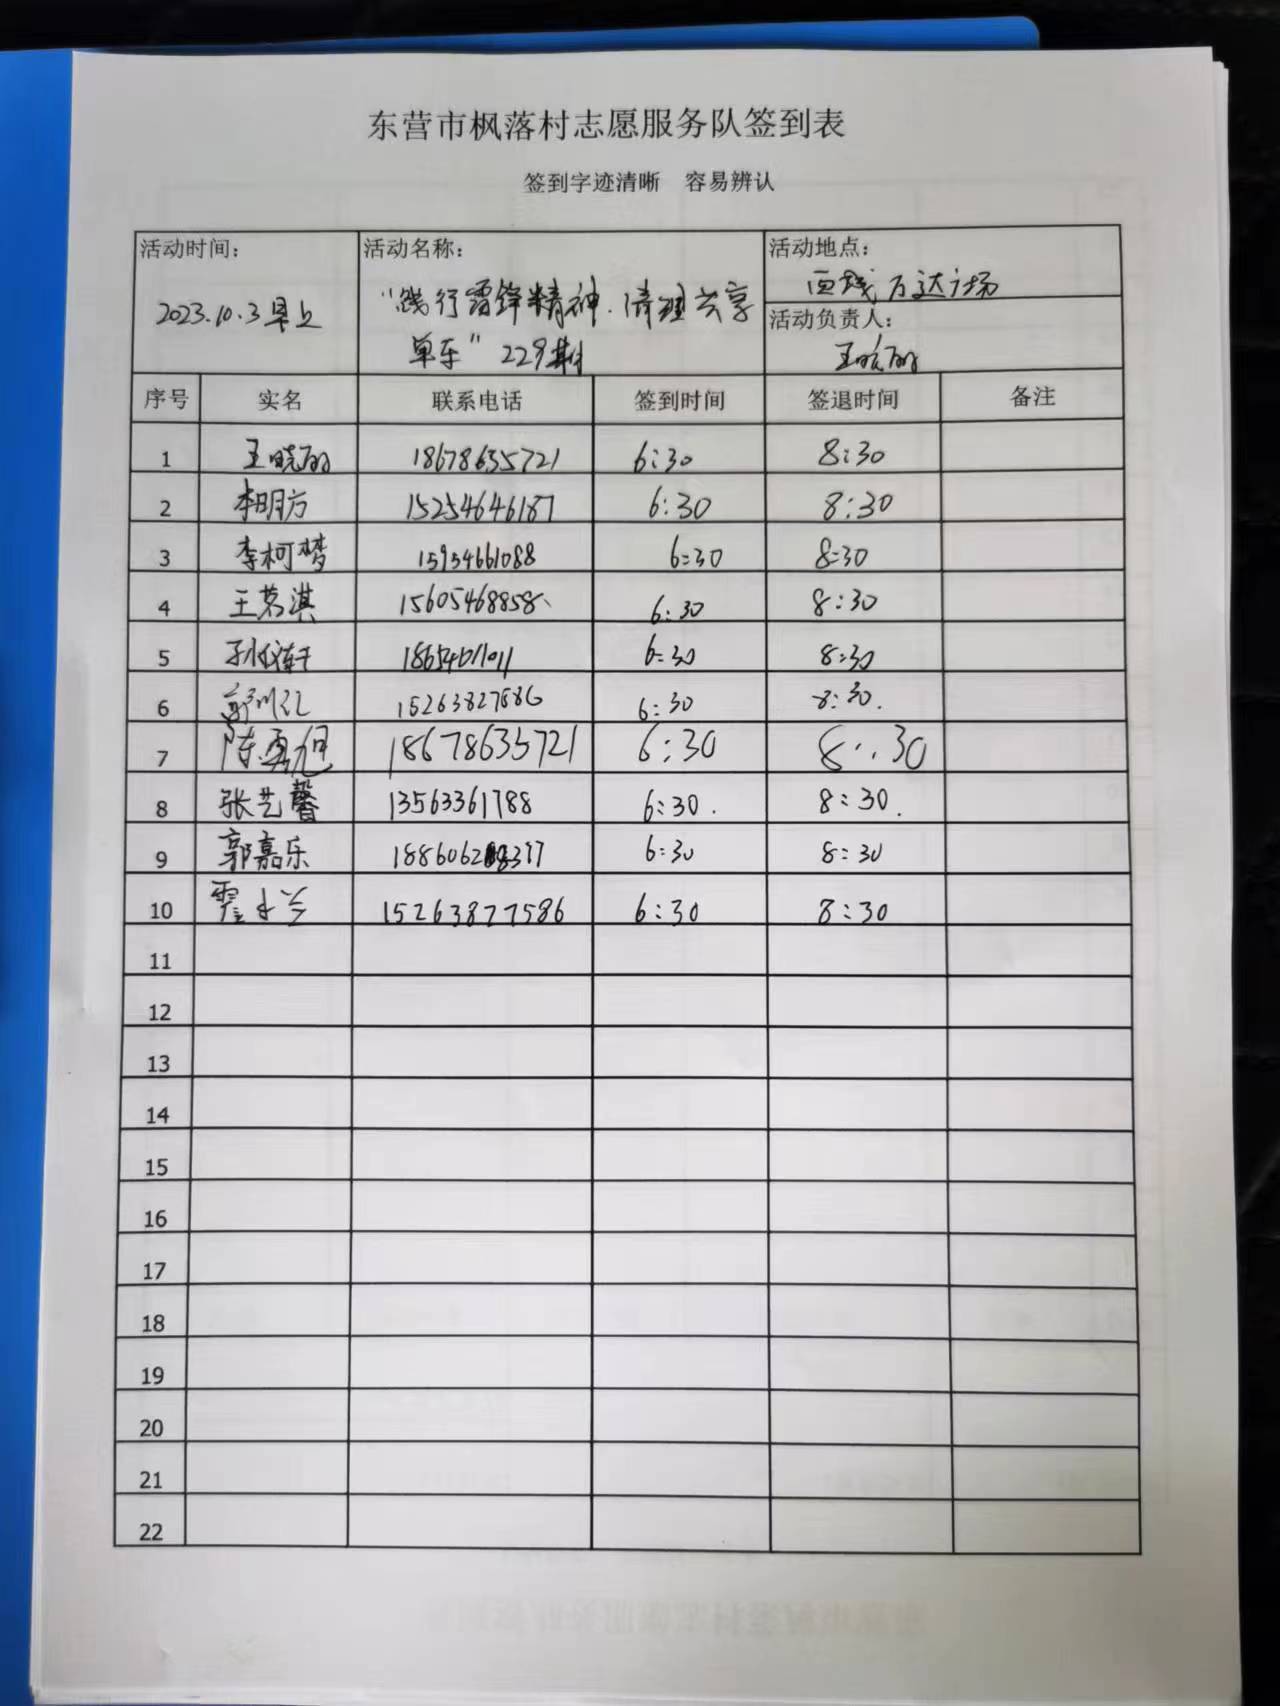 东营市枫落村志愿服务队签到表
签到字迹清晰 容易辨认
活动时间: 活动名称: 活动地点:
2023.10.3早上 "践行雷锋精神.清理共享单车" 229期 西城万达广场
活动负责人:
王晓丽
序号 实名 联系电话 签到时间 签退时间 备注
1 王晓丽 18678635721 6:30 8:30
2 李明方 15254646187 6:30 8:30
3 李柯梦 15954661088 6:30 8:30
4 王茗淇 15605468858 6:30 8:30
5 6:30 8:30
6 6:30 8:30.
7 陈勇旭 18678635721 6:30 8:30
8 张艺馨 13563361788 6:30. 8:30.
9 郭嘉乐 6:30 8:30
10 15263877586 6:30 8:30
11
12
13
14
15
16
17
18
19
20
21
22